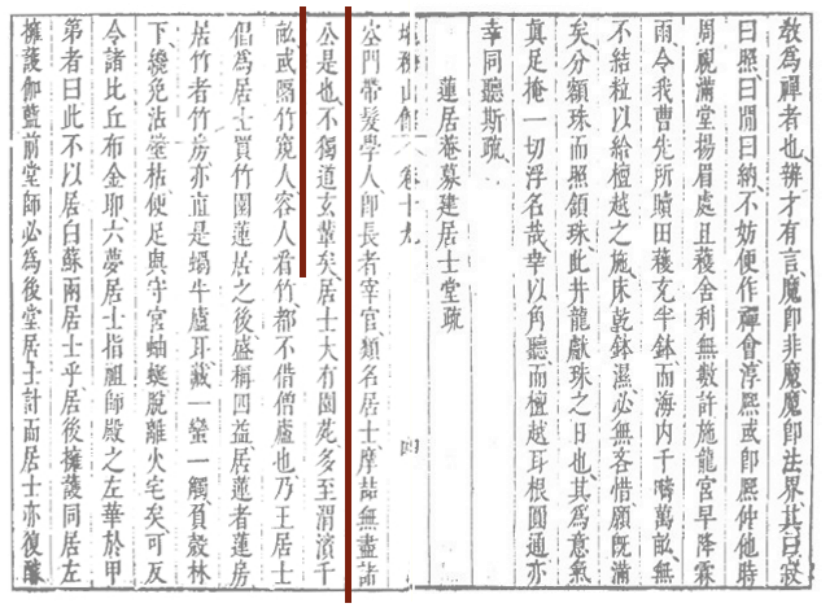 敎爲禪者也辨才有言魔卽非魔魔卽法界其曰寂
曰照曰閒曰納不妨便作禪會淳熙或卽熙仲他時
周視滿堂揚眉處且穫舍利無數許施龍宮早降霖
雨令我曹先所贖田穫充半鉢而海内千疇萬畝無
不結粒以給檀越之施床乾鉢濕必無吝惜願旣滿
矣分額珠而照領珠此井龍獻珠之日也其爲意氣
眞足掩一切浮名哉幸以角聽而檀越耳根圓通亦
幸同聽斯疏
蓮居菴募建居士堂疏
山館 卷十九 四
空門帶髮學人卽長者宰官類名居士摩詰無盡諸
公是也不獨道玄輩矣居士大有園苑多至渭濱千
畝或隔竹窺人容人看竹都不借僧廬也乃王居士
倡爲居士買竹園蓮居之後盛稱四益居蓮者蓮房
居竹者竹房亦直是蝸牛廬耳藏一蠻一觸負殼林
下纔免沾瑩枯便足與守宮蚰蜒脫離火宅矣可反
令諸比丘布金耶六夢居士指祖師殿之左華於甲
第者曰此不以居白蘇兩居士乎居後擁護同居左
擁護伽藍前堂師必爲後堂居士計而居士亦復釀